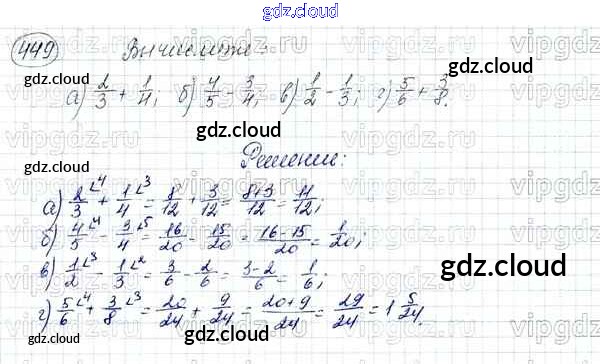 gdz.cloud
449 Вычислите:
а) 2/3 + 1/4; б) 4/5 - 3/4; в) 1/2 - 1/3; г) 5/6 + 3/8.
gdz.cloud gdz.cloud
Решение:
а) 2/3 ∟4 + 1/4 ∟3 = 8/12 + 3/12 = 8+3/12 = 11/12;
б) 4/5 ∟4 - 3/4 ∟5 = 16/20 - 15/20 = 16-15/20 = 1/20;
в) 1/2 ∟3 - 1/3 ∟2 = 3/6 - 2/6 = 3-2/6 = 1/6;
gdz.cloud
г) 5/6 ∟4 + 3/8 ∟3 = 20/24 + 9/24 = 20+9/24 = 29/24 = 1 5/24.
gdz.cloud
gdz.cloud